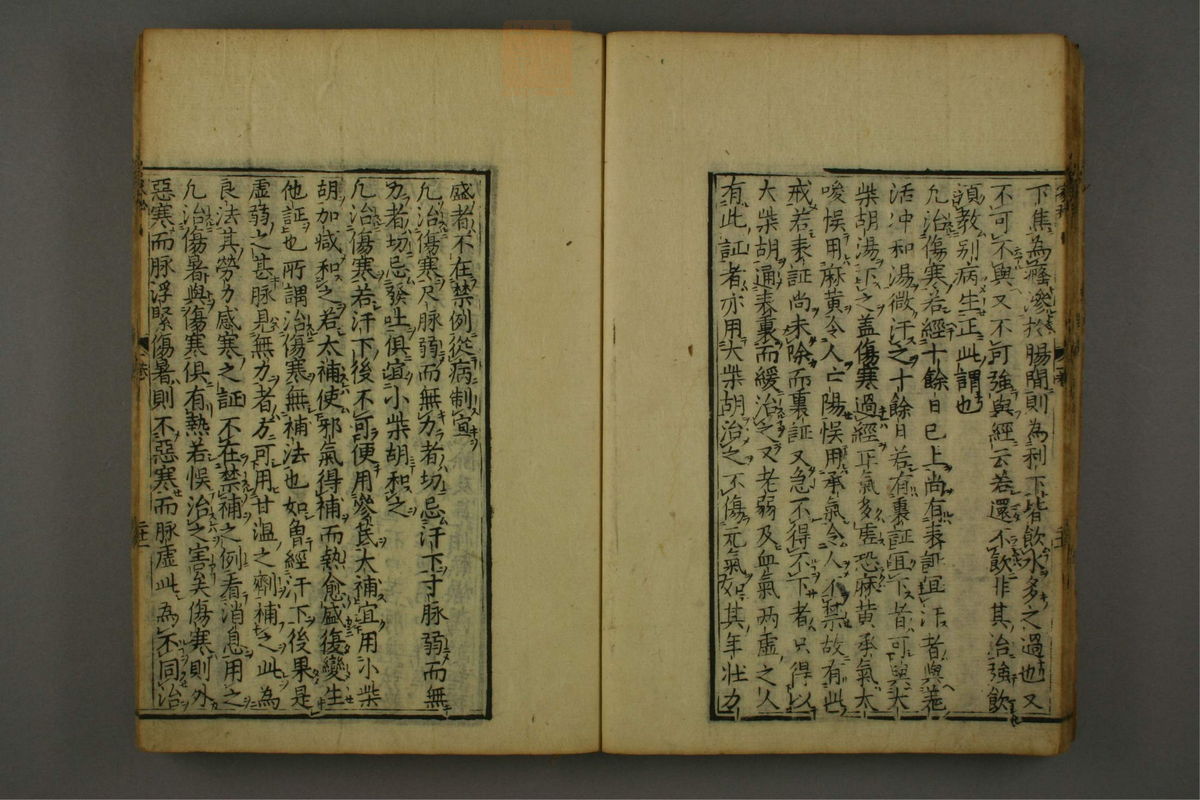 下焦為癃滲於腸間則為利下皆飲水多之過也又
不可不與又不可強與經云若還不飲非其治強飲
須教别病生正此謂也
凢治傷寒若經十餘日已上尚有表証宜汗者與羗
活冲和湯微汗之十餘日若有裏証宜下者可與大
柴胡湯下之盖傷寒過經正氣多虚恐麻黄承氣太
峻悮用麻黄令人亡陽悮用承氣令人不禁故有此
戒若表証尚未除而裏証又急不得不下者只得以
大柴胡通表裏而緩治之又老弱及血氣两虚之人
有此証者亦用大柴胡治之不傷元氣如其年壮力
盛者不在禁例從病制宜
凢治傷寒尺脉弱而無力者切忌汗下寸脉弱而無
力者切忌發吐俱宜小柴胡和之
凢治傷寒若汗下後不可便用參芪大補宜用小柴
胡加减和之若太補使邪氣得補而熱愈盛復變生
他証也所謂治傷寒無補法也如曽經汗下後果是
虚弱之甚脉見無力者方可用甘温之劑補之此為
良法其勞力感寒之証不在禁補之例看消息用之
凢治傷暑與傷寒俱有熱若悮治之害矣傷寒則外
惡寒而脉浮緊傷暑則不惡寒而脉虚此為不同治